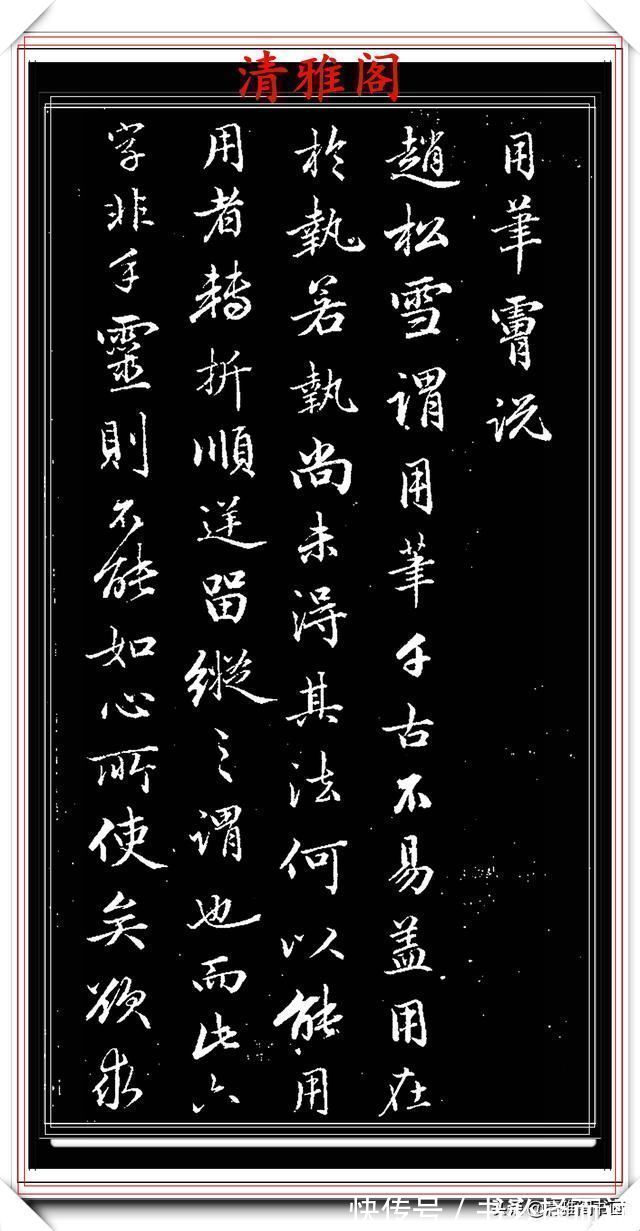 清雅阁
用筆臂说
趙松雪謂用筆千古不易盖用在
於執若執尚未得其法何以能用
用者轉折順逆留縱之謂也而此六
字非手靈則不能如心所使矣欲求
快传号 / 书彩缘画